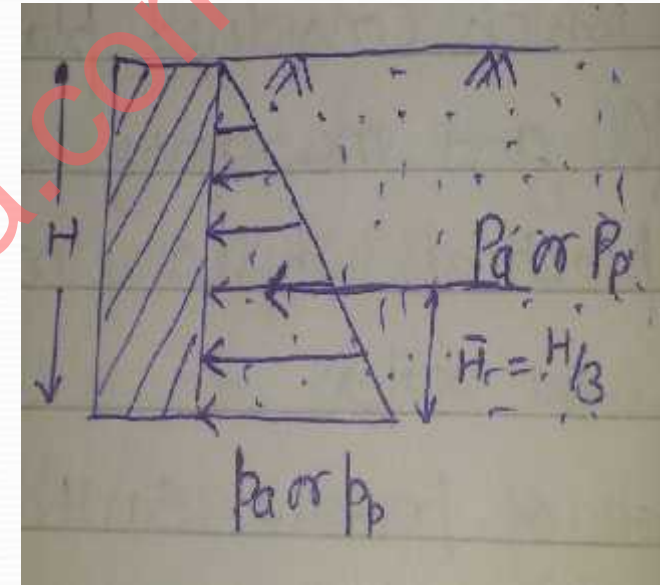 H
Pa or Pp
H̄ = H/3
pa or pp